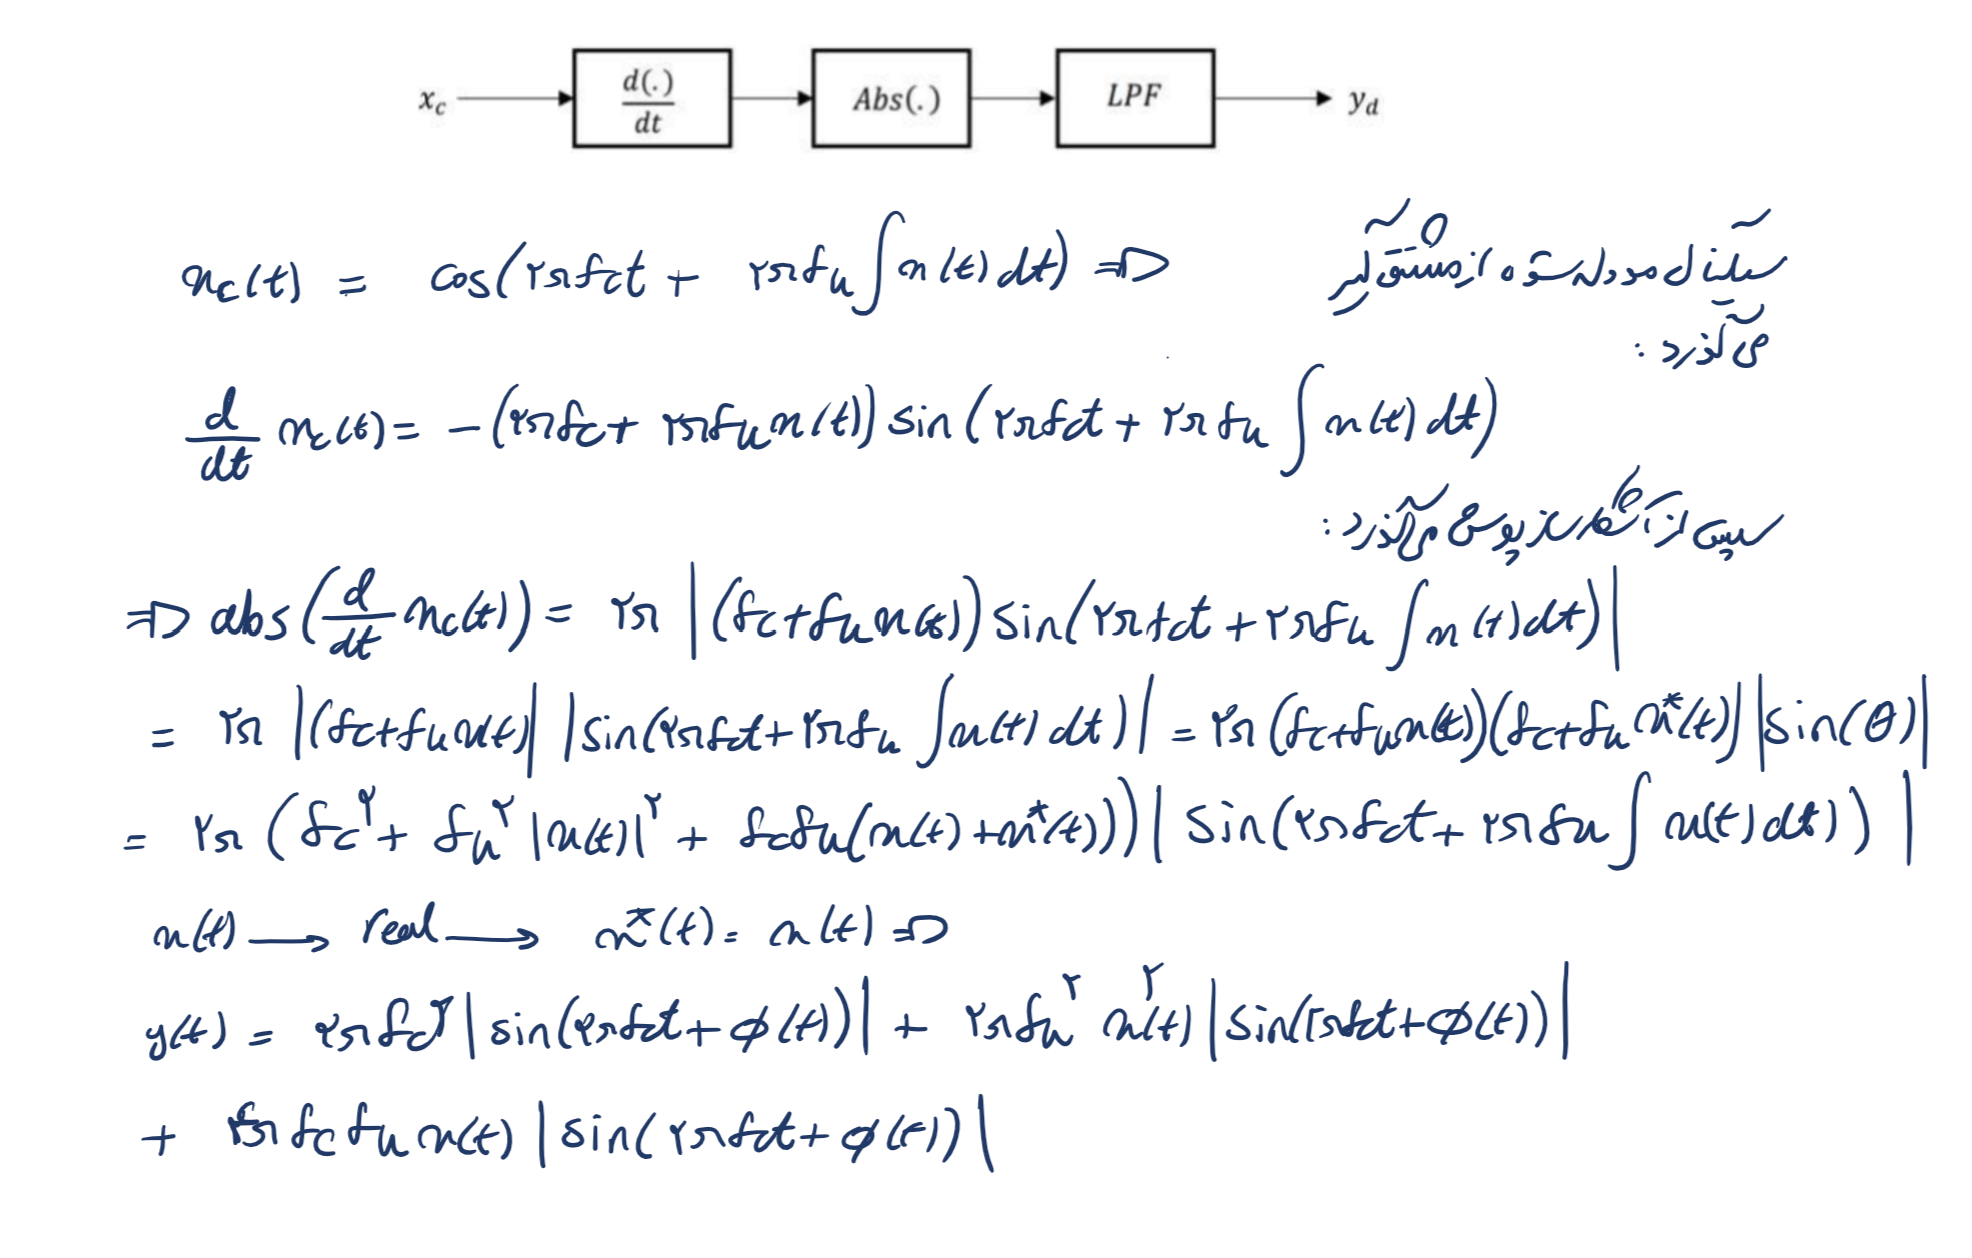 x_c → d(.)/dt → Abs(.) → LPF → y_d
x_c(t) = cos(۲πf_c t + ۲πf_Δ ∫ x(t) dt) ⇒ سیگنال مدوله شده از مشتق گیر
می گذرد :
d/dt x_c(t) = −(۲πf_c + ۲πf_Δ x(t)) sin(۲πf_c t + ۲πf_Δ ∫ x(t) dt)
سپس از آشکارساز پوش می گذرد :
⇒ abs(d/dt x_c(t)) = ۲π |(f_c + f_Δ x(t)) sin(۲πf_c t + ۲πf_Δ ∫ x(t) dt)|
= ۲π |(f_c + f_Δ x(t)| |sin(۲πf_c t + ۲πf_Δ ∫ x(t) dt)| = ۲π (f_c + f_Δ x(t))(f_c + f_Δ x*(t)) |sin(θ)|
= ۲π (f_c^۲ + f_Δ^۲ |x(t)|^۲ + f_c f_Δ (x(t) + x*(t))) |sin(۲πf_c t + ۲πf_Δ ∫ x(t) dt)|
x(t) → real → x*(t) = x(t) ⇒
y(t) = ۲πf_c^۲ |sin(۲πf_c t + φ(t))| + ۲πf_Δ^۲ x^۲(t) |sin(۲πf_c t + φ(t))|
+ ۴π f_c f_Δ x(t) |sin(۲πf_c t + φ(t))|